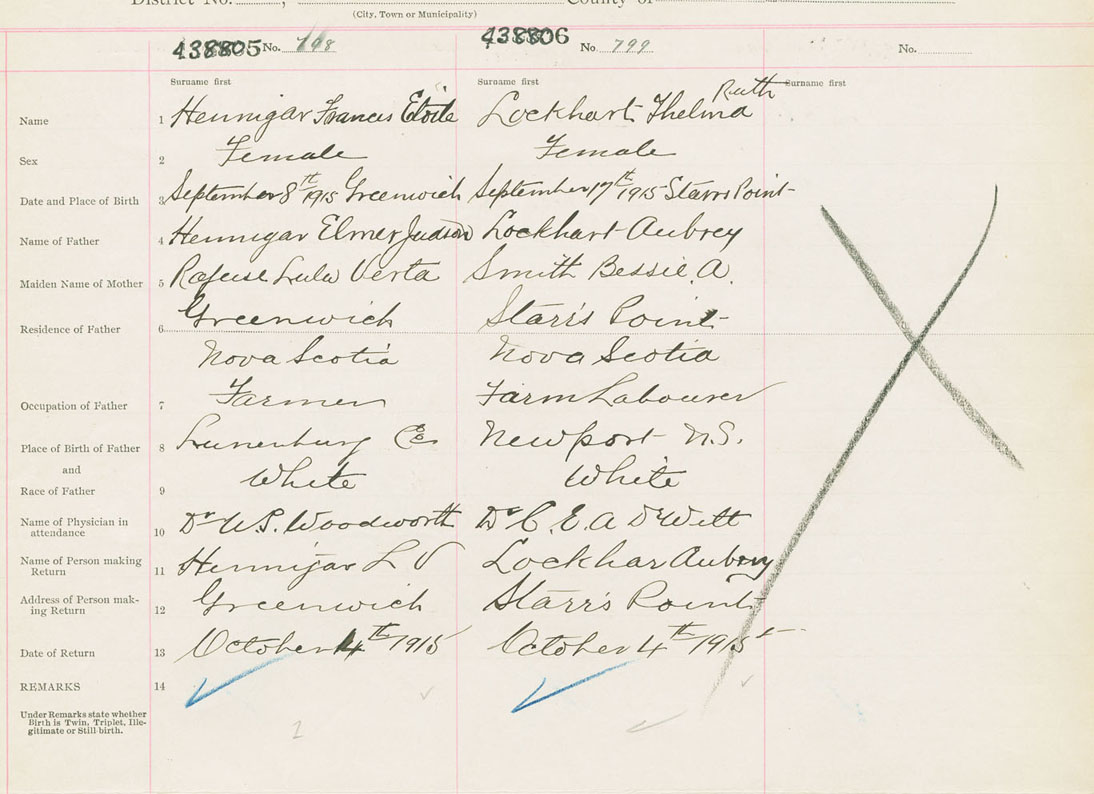 District No. , County of
(City, Town or Municipality)
438805 No. 798 438806 No. 799 No.
Surname first Surname first Surname first
Ruth
Name 1 Hennigar Francis Eloile Lockhart Thelma
Sex 2 Female Female
Date and Place of Birth 3 September 8th 1915 Greenwich September 17th 1915 Starrs Point
Name of Father 4 Hennigar Elmer Judson Lockhart Aubrey
Maiden Name of Mother 5 Rafuse Lula Verta Smith Bessie A.
Residence of Father 6 Greenwich Starr's Point
Nova Scotia Nova Scotia
Occupation of Father 7 Farmer Farm Labourer
Place of Birth of Father 8 Lunenburg Co Newport N.S.
and
Race of Father 9 White White
Name of Physician in
attendance 10 Dr W.S. Woodworth Dr C. E. A DeWitt
Name of Person making
Return 11 Hennigar L V Lockhar Aubrey
Address of Person mak-
ing Return 12 Greenwich Starr's Point
Date of Return 13 October 4th 1915 October 4th 1915
REMARKS 14
Under Remarks state whether
Birth is Twin, Triplet, Ille-
gitimate or Still birth.